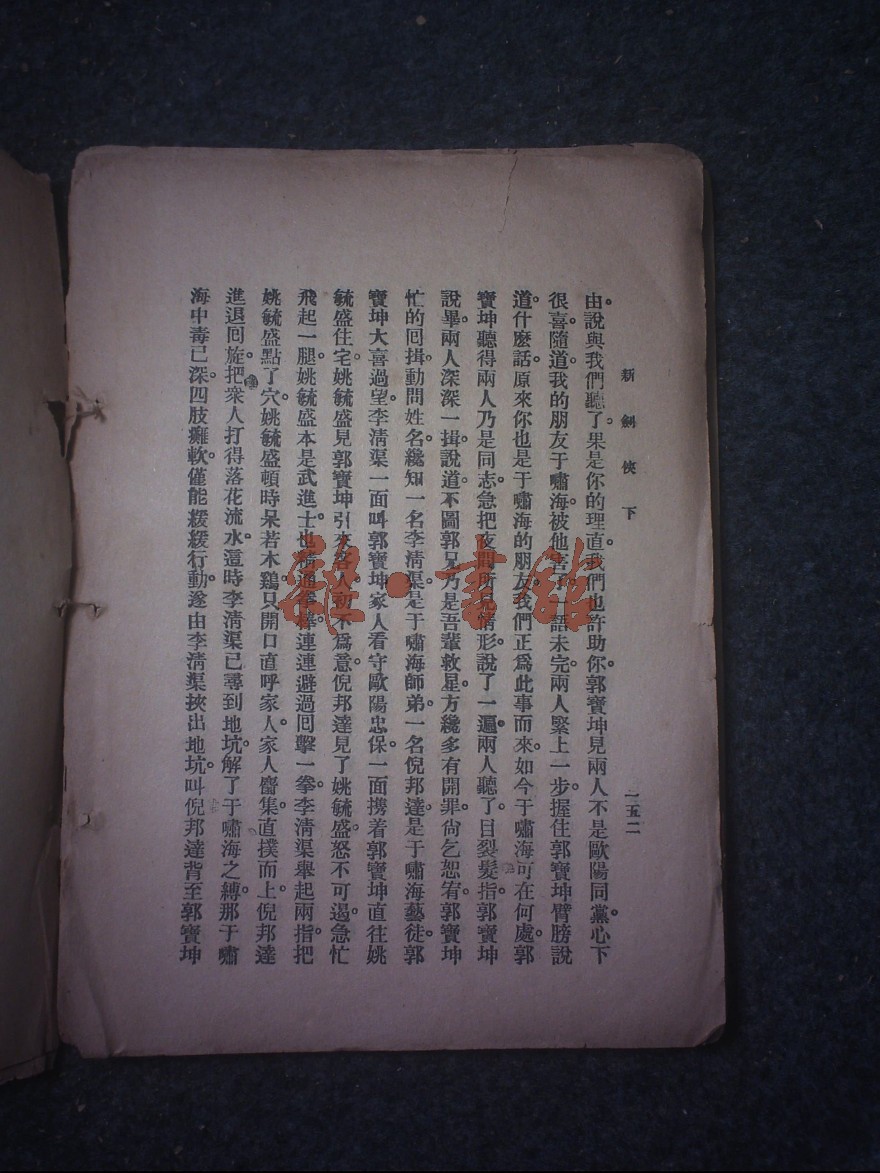 新劍俠下
二五二
由。說與我們聽了。果是你的理直。我們也許助你。郭寶坤見兩人不是歐陽同黨。心下
很喜。隨道我的朋友于嘯海。被他害了。一語未完。兩人緊上一步。握住郭寶坤臂膀說
道。什麼話。原來你也是于嘯海的朋友。我們正爲此事而來。如今于嘯海可在何處。郭
寶坤聽得兩人乃是同志。急把夜間所見情形。說了一遍。兩人聽了。目裂髮指。郭寶坤
說畢。兩人深深一揖。說道。不圖郭兄乃是吾輩救星。方纔多有開罪。尙乞恕宥。郭寶坤
忙的囘揖。動問姓名。纔知一名李淸渠。是于嘯海師弟。一名倪邦達。是于嘯海藝徒。郭
寶坤大喜過望。李淸渠一面叫郭寶坤家人看守歐陽忠保。一面携着郭寶坤直往姚
毓盛住宅。姚毓盛見郭寶坤引來客人。初不爲意。倪邦達見了姚毓盛。怒不可遏。急忙
飛起一腿。姚毓盛本是武進士。也精通拳棒。連連避過囘擊一拳。李淸渠舉起兩指。把
姚毓盛點了穴。姚毓盛頓時呆若木鷄。只開口直呼家人。家人齊集。直撲而上。倪邦達
進退囘旋。把衆人打得落花流水。這時李淸渠已尋到地坑。解了于嘯海之縛。那于嘯
海中毒已深。四肢癱軟。僅能緩緩行動。遂由李淸渠挾出地坑。叫倪邦達背至郭寶坤
雜·書館